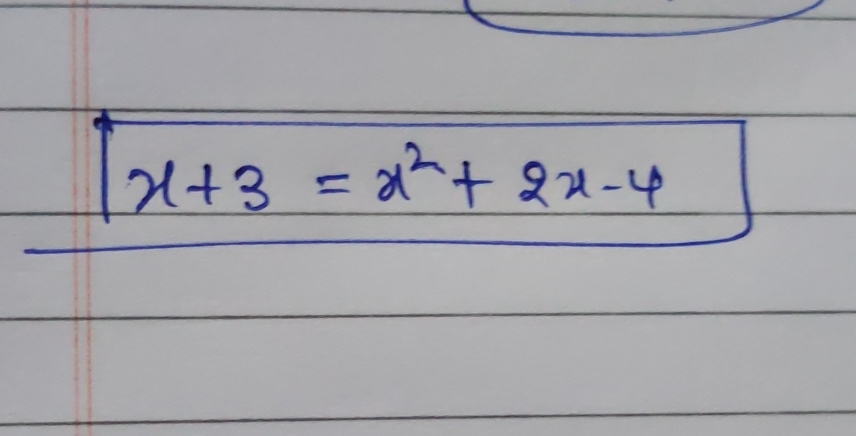 x+3 = x² + 2x-4